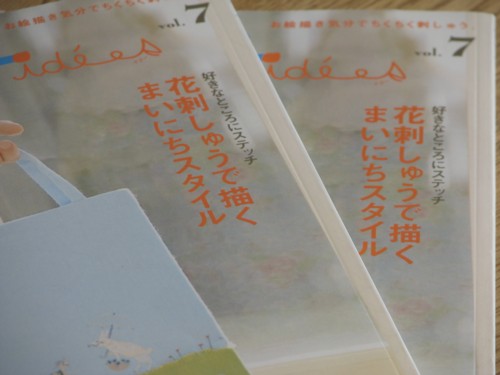 お絵描き気分でちくちく刺しゅう
vol. 7
idées
好きなところにステッチ
花刺しゅうで描く
まいにちスタイル
お絵描き気分でちくちく刺しゅう
vol. 7
idées
好きなところにステッチ
花刺しゅうで描く
まいにちスタイル